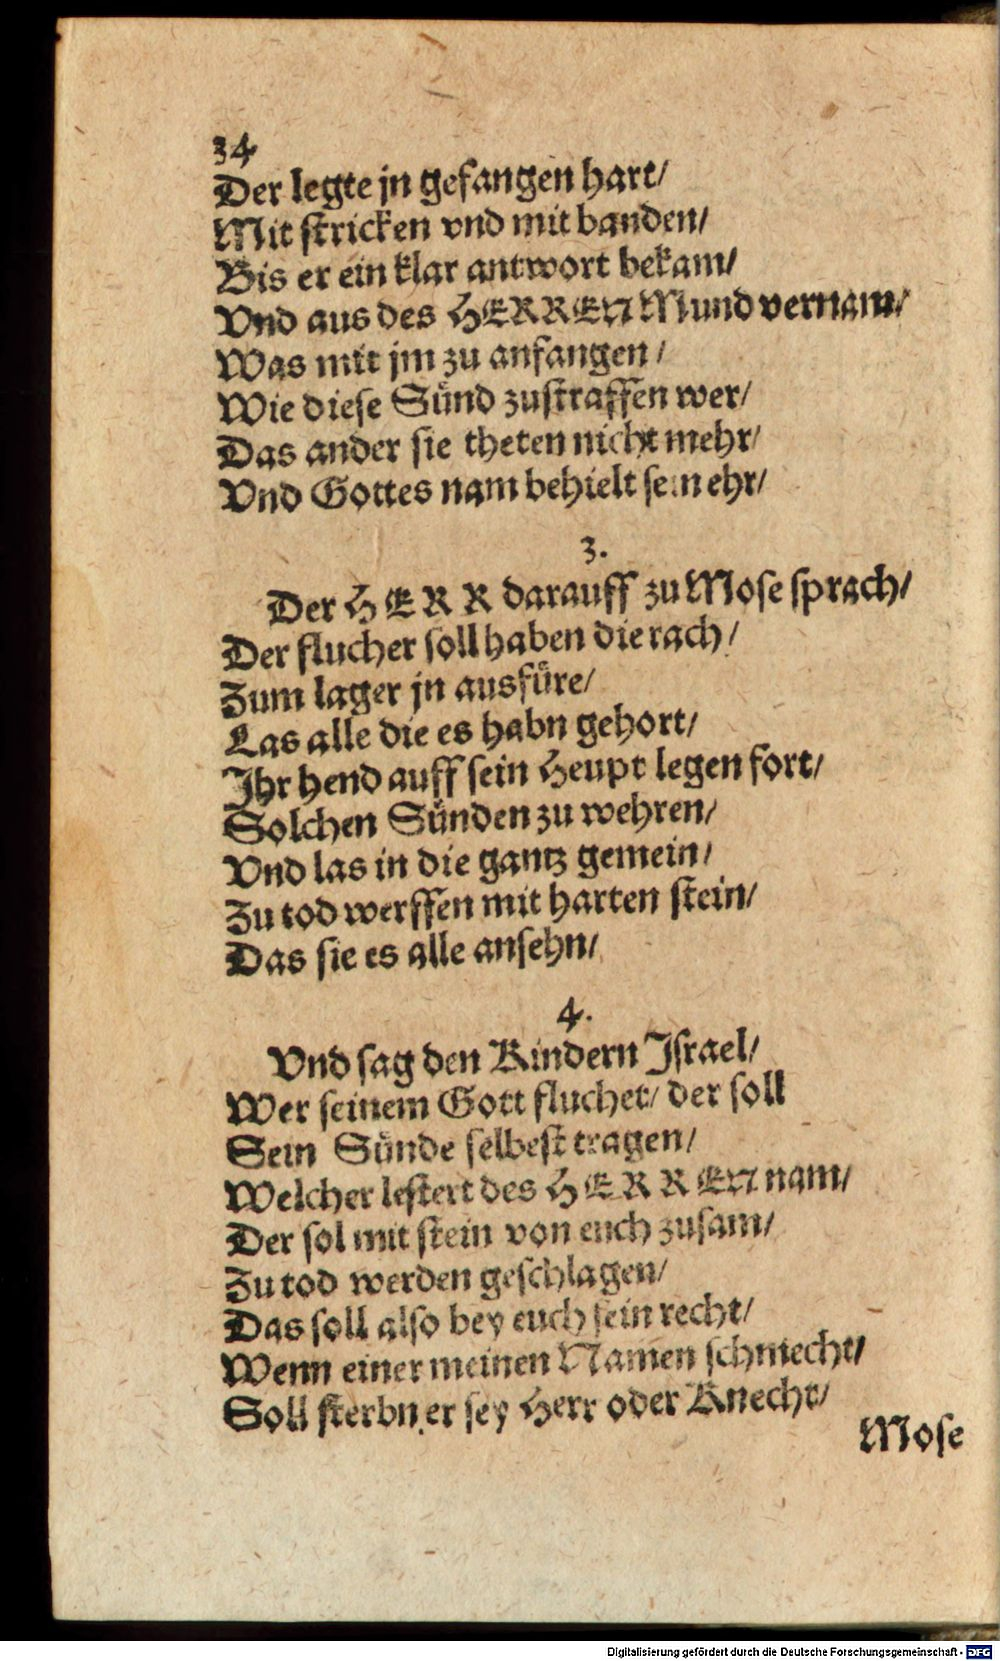 34
Der legte jn gefangen hart/
Mit stricken vnd mit banden/
Bis er ein klar antwort bekam/
Vnd aus des HERREN Mund vernam/
Was mit jm zu anfangen/
Wie diese Sünd zustraffen wer/
Das ander sie theten nicht mehr/
Vnd Gottes nam behielt sein ehr/
3.
Der HERR darauff zu Mose sprach/
Der flucher soll haben die rach/
Zum lager jn ausfüre/
Las alle die es habn gehort/
Ihr hend auff sein Heupt legen fort/
Solchen Sünden zu wehren/
Vnd las in die gantz gemein/
Zu tod werffen mit harten stein/
Das sie es alle ansehn/
4.
Vnd sag den Kindern Israel/
Wer seinem Gott fluchet/ der soll
Sein Sünde selbest tragen/
Welcher lestert des HERREN nam/
Der sol mit stein von euch zusam/
Zu tod werden geschlagen/
Das soll also bey euch sein recht/
Wenn einer meinen Namen schmecht/
Soll sterbn er sey Herr oder Knecht/
Mose
Digitalisierung gefördert durch die Deutsche Forschungsgemeinschaft - DFG